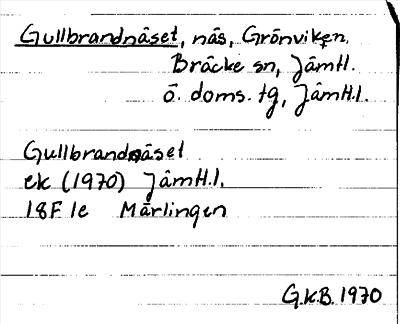 Gullbrandnäset, näs, Grönviken.
Bräcke sn, Jämtl.
ö. doms. tg, Jämtl.l.
Gullbrandnäset
ek (1970) Jämtl.l.
18F 1e Märlingen
G.K.B. 1970